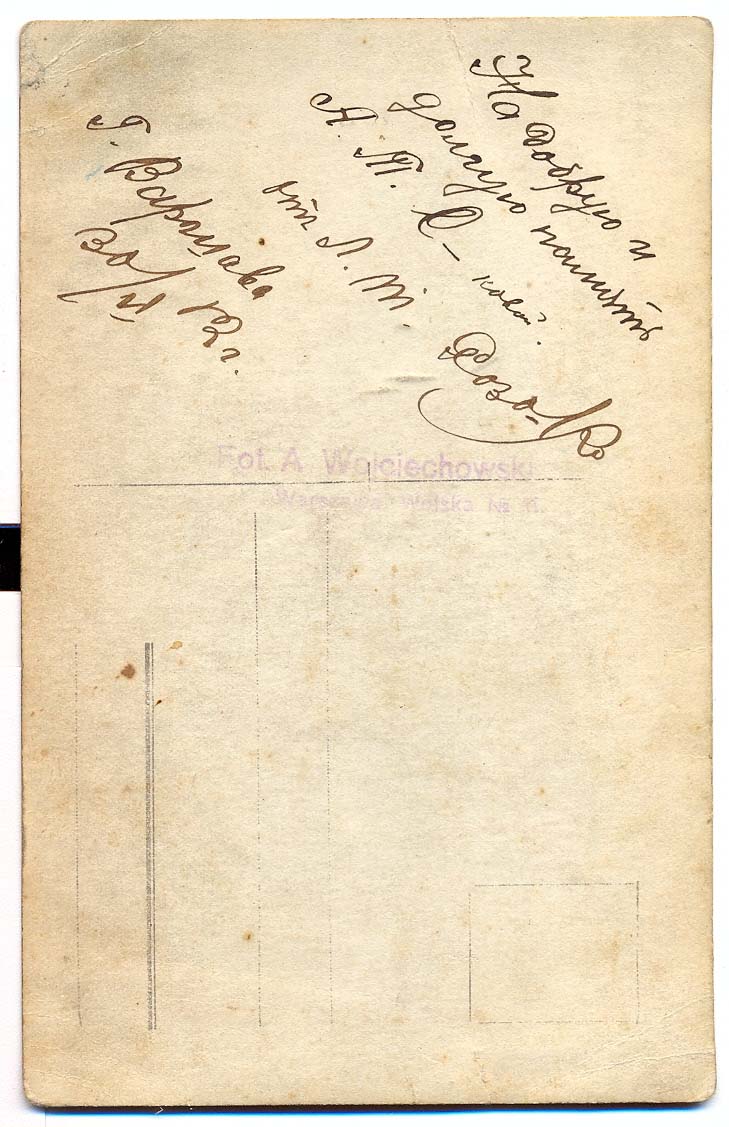 На добрую и
долгую память
А. Т. С-ковой.
отъ Л. Т.
г. Варшава
30/VI
Fot. A. Wojciechowski
Warszawa, Wolska № 11.